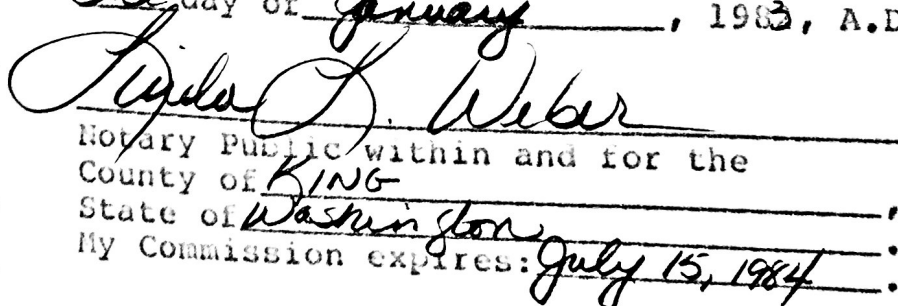 day of January, 1983, A.D
Linda K. Weber
Notary Public within and for the
County of KING,
State of Washington.
My Commission expires: July 15, 1984.